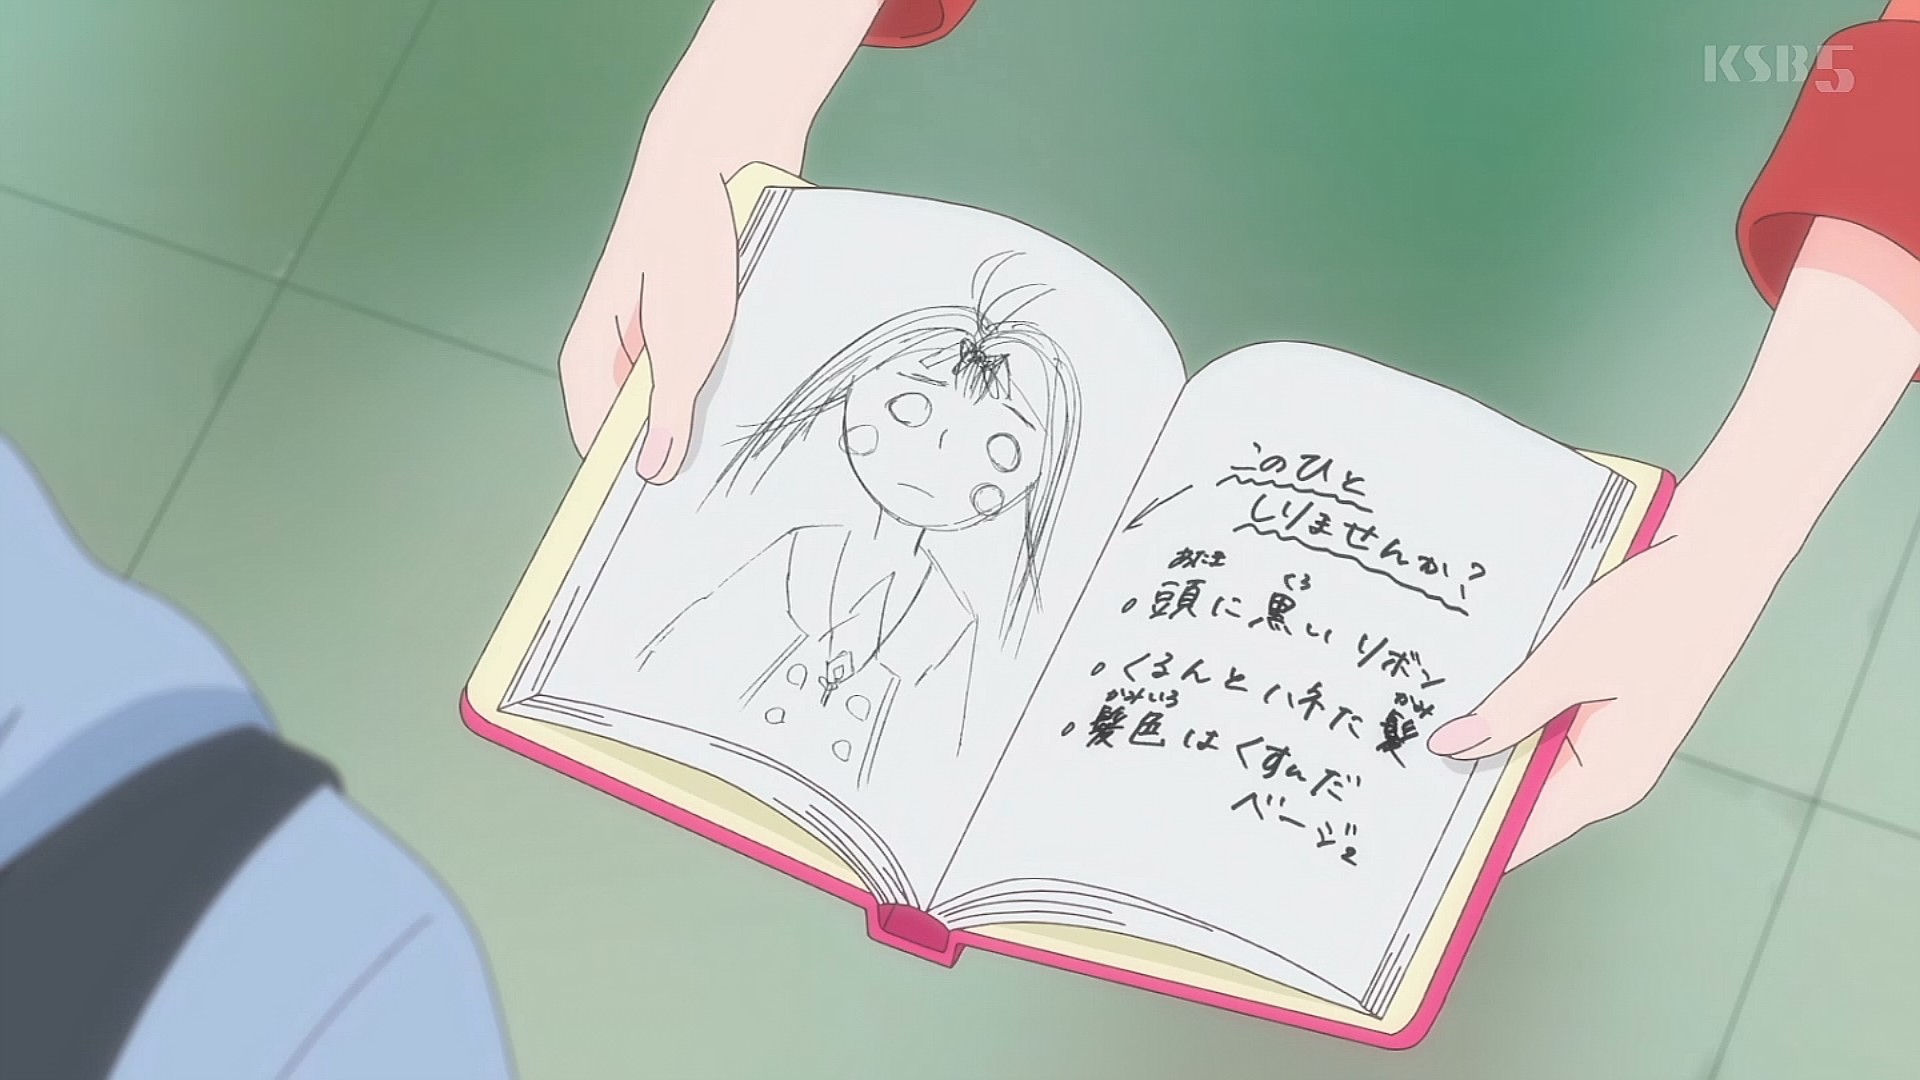 KSB5
このひと
しりませんか?
あたま くろ
・頭に黒いリボン
かみ
・くるんとハネた髪
かみいろ
・髪色はくすんだ
ベージュ